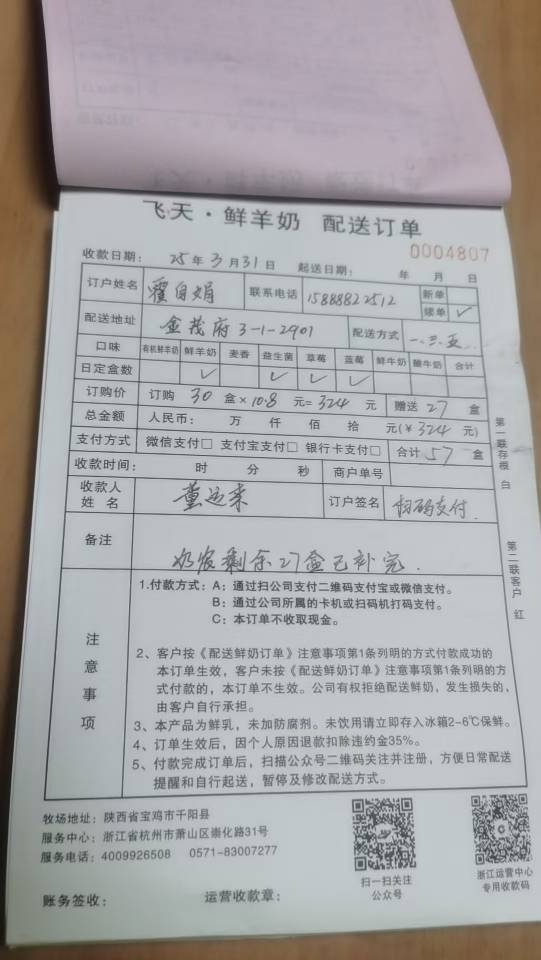 飞天·鲜羊奶 配送订单
0004807
收款日期： 25 年 3 月 31 日 起送日期： 年 月 日
订户姓名 霍自娟 联系电话 15888822512 新单
续单 ✓
配送地址 金茂府3-1-2901 配送方式 一.三.五
口味 有机鲜羊奶 鲜羊奶 麦香 益生菌 草莓 蓝莓 鲜牛奶 酸牛奶 合计
日定盒数 ✓ ✓ ✓ ✓
订购价 订购 30 盒×10.8 元=324 元 赠送 27 盒
总金额 人民币： 万 仟 佰 拾 元(￥324 元)
支付方式 微信支付□ 支付宝支付□ 银行卡支付□ 合计 57 盒
收款时间： 时 分 秒 商户单号
收款人姓名 董运来 订户签名 扫码支付.
备注 奶农剩余27盒已补完.
第一联存根 白
第二联客户 红
注意事项
1.付款方式：A；通过扫公司支付二维码支付宝或微信支付。
B；通过公司所属的卡机或扫码机打码支付。
C；本订单不收取现金。
2、客户按《配送鲜奶订单》注意事项第1条列明的方式付款成功的
本订单生效，客户未按《配送鲜奶订单》注意事项第1条列明的方
式付款的，本订单不生效。公司有权拒绝配送鲜奶，发生损失的，
由客户自行承担。
3、本产品为鲜乳，未加防腐剂。未饮用请立即存入冰箱2-6℃保鲜。
4、订单生效后，因个人原因退款扣除违约金35%。
5、付款完成订单后，扫描公众号二维码关注并注册，方便日常配送
提醒和自行起送，暂停及修改配送方式。
牧场地址：陕西省宝鸡市千阳县
服务中心：浙江省杭州市萧山区崇化路31号
服务电话：4009926508 0571-83007277
扫一扫关注
公众号
浙江运营中心
专用收款码
账务签收： 运营收款章：